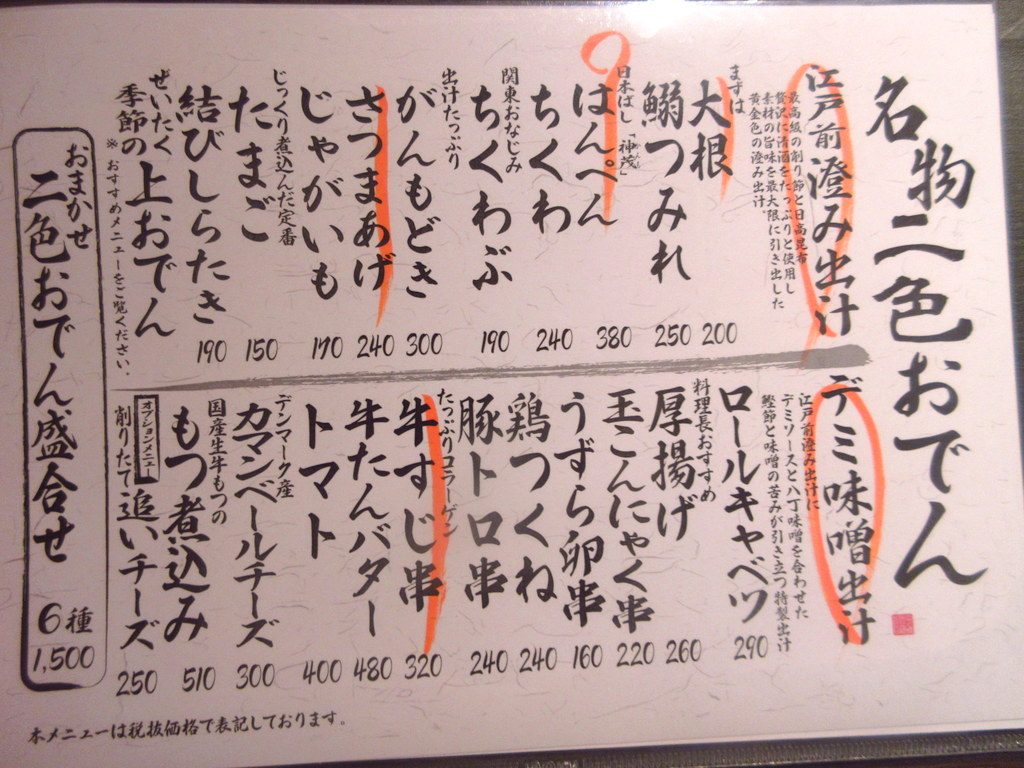 名物二色おでん
江戸前澄み出汁
最高級の削り節と日高昆布
贅沢に清酒をたっぷりと使用し
素材の旨味を最大限に引き出した
黄金色の澄み出汁
まずは
大根 200
鰯つみれ 250
日本ばし「神茂」
はんぺん 380
ちくわ 240
関東おなじみ
ちくわぶ 190
出汁たっぷり
がんもどき 300
さつまあげ 240
じゃがいも 170
じっくり煮込んだ定番
たまご 150
結びしらたき 190
ぜいたく
季節の上おでん
※おすすめメニューをご覧ください。
デミ味噌出汁
江戸前澄み出汁に
デミソースと八丁味噌を合わせた
鰹節と味噌の苦みが引き立つ特製出汁
ロールキャベツ 290
料理長おすすめ
厚揚げ 260
玉こんにゃく串 220
うずら卵串 160
鶏つくね 240
豚トロ串 240
たっぷりコラーゲン
牛すじ串 320
牛たんバター 480
トマト 400
デンマーク産
カマンベールチーズ 300
国産生牛もつの
もつ煮込み 510
オプションメニュー
削りたて追いチーズ 250
おまかせ
二色おでん盛合せ 6種 1,500
本メニューは税抜価格で表記しております。